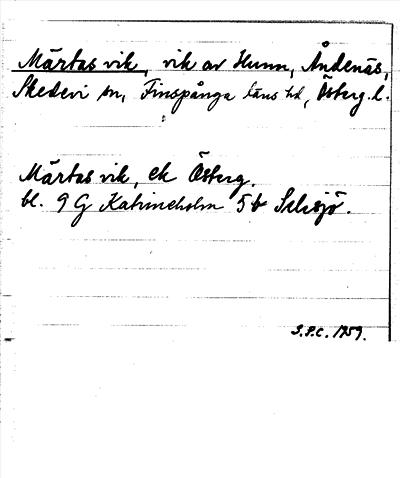 Märtas vik, vik av Hunn, Åndenäs,
Skedevi sn, Finspånga läns hd, Österg. l.
Märtas vik, ek Österg.
bl. 9 G Katrineholm 5 b
S.P.C. 1959.